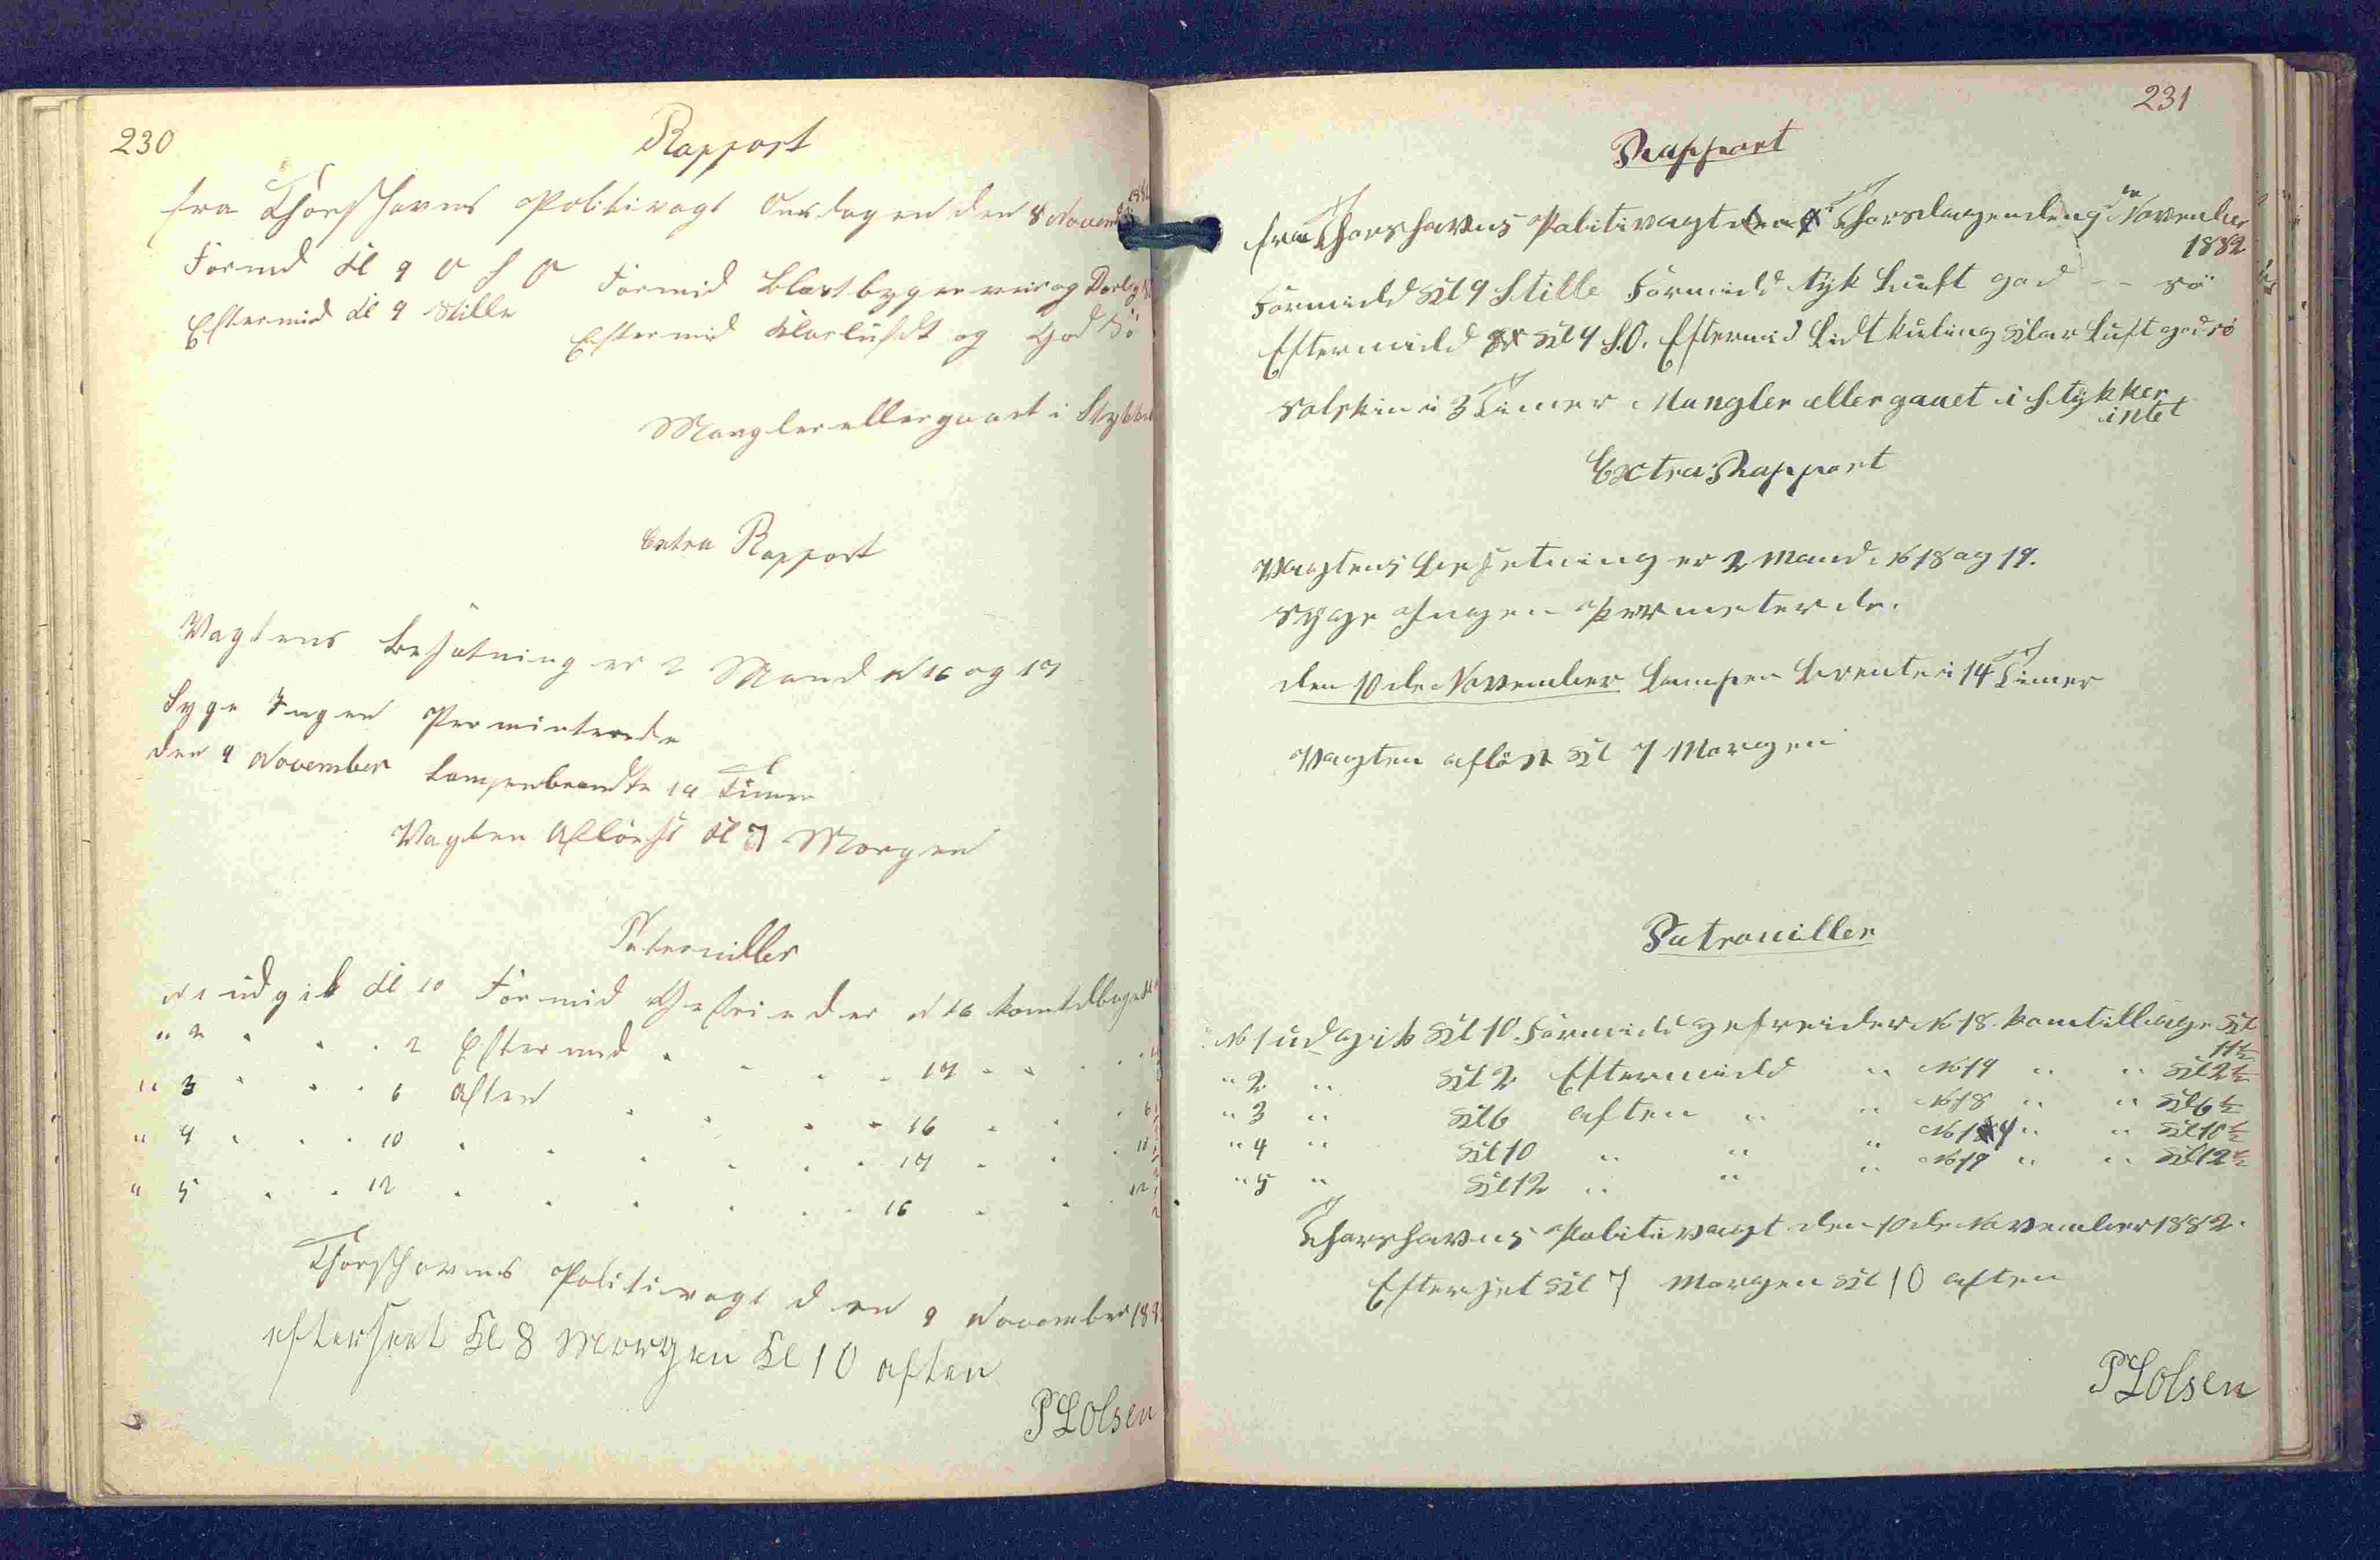 230
Rapport
fra Thorshavns Politivagt Onsdagen den 8 Novemb
Formd Kl 9 O S O Formid Blæst bygeveir og Darlig
Eftermid Kl 4 Stille Eftermid Klarluft og God Sö
Mangler eller gaaet i Stykker
Extra Rapport
Vagtens Besætning er 2 Mand N 16 og 17
Syge Ingen Perminterede
den 9 November Lampenbrændte 14 Timer
Vagten Aflöst Kl 7 Morgen
Patrouiller
N 1 udgik Kl 10 Formid Gefrieder N 16 kom tilbage Kl
" 2 " " " 2 Eftermid " " " " 17 " " "
" 3 " " " 6 Aften " " " " 16 " " " 6
" 4 " " " 10 " " " " " 17 " " " 10
" 5 " " 12 " " " " " 16 " " " 12
Thorshavns Politivagt den 9 November 188
efterseet Kl 8 Morgen Kl 10 aften
P L Olsen
231
Rapport
fra Thorshavns Politivagt Thorsdagen den 9 de November
1882
Formidd Kl 9 Stille Formidd tyk Luft god -- sö
Eftermidd Kl 4 S.O. Eftermid Lidt kuling Klar Luft god sö
Solskin i 3 Timer Mangler eller gaaet i Stykker
intet
Extra Rapport
Vagtens Besetning er 2 Mand. No 18 og 19.
Syge Ingen Permeterede.
den 10 de November Lampen Brente i 14 Timer
Vagten aflöst Kl 7 Morgen
Patrouiller
No 1 udgik Kl 10. Formidd gefreider No 18. kom tilbage Kl
11½
" 2 " Kl 2 Eftermidd " No 19 " " Kl 2½
" 3 " Kl 6 aften " " No 18 " " Kl 6½
" 4 " Kl 10 " " " " " Kl 10½
" 5 " Kl 12 " " " No 19 " " Kl 12½
Thorshavns Politivagt den 10 de November 1882.
Efterset Kl 7 Morgen Kl 10 aften
P L Olsen